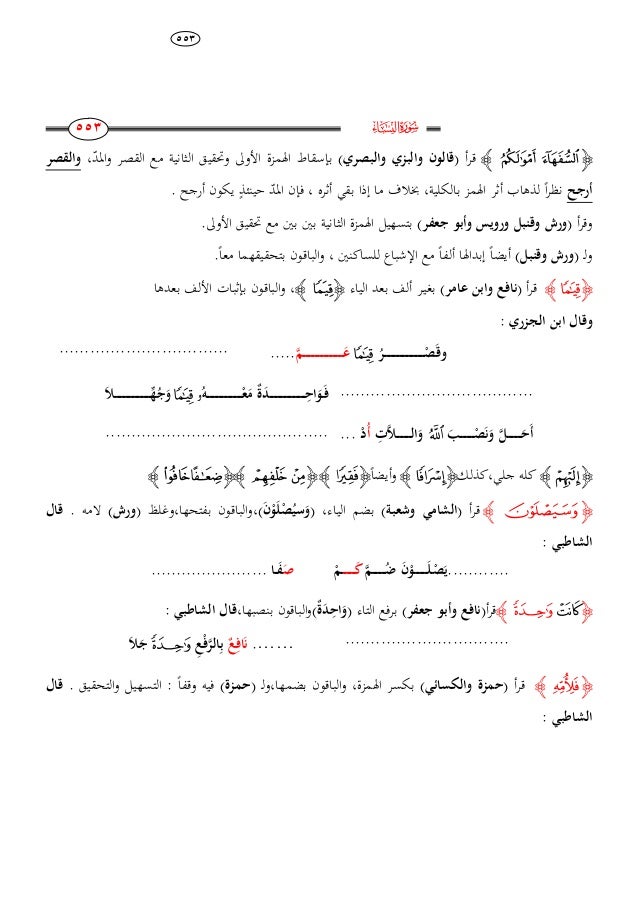 ٥٥٣
سُورَةُ النِّسَاءِ ٥٥٣
﴿ ٱلسُّفَهَآءَ أَمۡوَٰلَكُمُ ﴾ قرأ (قالون والبزي والبصري) بإسقاط الهمزة الأولى وتحقيق الثانية مع القصر والمدّ، والقصر
أرجح نظراً لذهاب أثر الهمز بالكلية، بخلاف ما إذا بقي أثره ، فإن المدّ حينئذٍ يكون أرجح .
وقرأ (ورش وقنبل ورويس وأبو جعفر) بتسهيل الهمزة الثانية بين بين مع تحقيق الأولى.
ولـ (ورش وقنبل) أيضاً إبدالها ألفاً مع الإشباع للساكنين ، والباقون بتحقيقهما معاً.
﴿ قِيَٰمٗا ﴾ قرأ (نافع وابن عامر) بغير ألف بعد الياء ﴿ قِيَمٗا ﴾، والباقون بإثبات الألف بعدها
وقال ابن الجزري :
وقَصْـــــرُ قِيَٰمٗا عَـــــمَّ..... ...............................
.................................... فَـوَاحِـــــدَةٌ مَعْـــــهُۥ قِيَٰمٗا وَجُهِّـــــلَا
أَحَـــلَّ وَنَصْـــبَ ٱللَّهُ وَالـــلَّاتِ أُدْ ... .........................................
﴿ إِلَيۡهِمۡ ﴾ كله جلي،كذلك﴿ إِسۡرَافٗا ﴾ وأيضاً﴿ فَقِيرٗا ﴾﴿ مِنۡ خَلۡفِهِمۡ ﴾﴿ ضِعَٰفًا خَافُواْ ﴾
﴿ وَسَيَصۡلَوۡنَ ﴾ قرأ (الشامي وشعبة) بضم الياء، (وَسيُصْلَوْنَ)،والباقون بفتحها،وغلظ (ورش) لامه . قال
الشاطبي :
...........يَصْلَـــوْنَ ضُـــمَّ كَـــمْ صَفَـا ......................
﴿ كَانَتۡ وَٰحِدَةٗ ﴾قرأ(نافع وأبو جعفر) برفع التاء (وَاحِدَةٌ)والباقون بنصبها،قال الشاطبي :
............................... ....... نَافِعٌ بِالرَّفْعِ وَٰحِدَةٗ جَلَا
﴿ فَلِأُمِّهِ ﴾ قرأ (حمزة والكسائي) بكسر الهمزة، والباقون بضمها،ولـ (حمزة) فيه وقفاً : التسهيل والتحقيق . قال
الشاطبي :